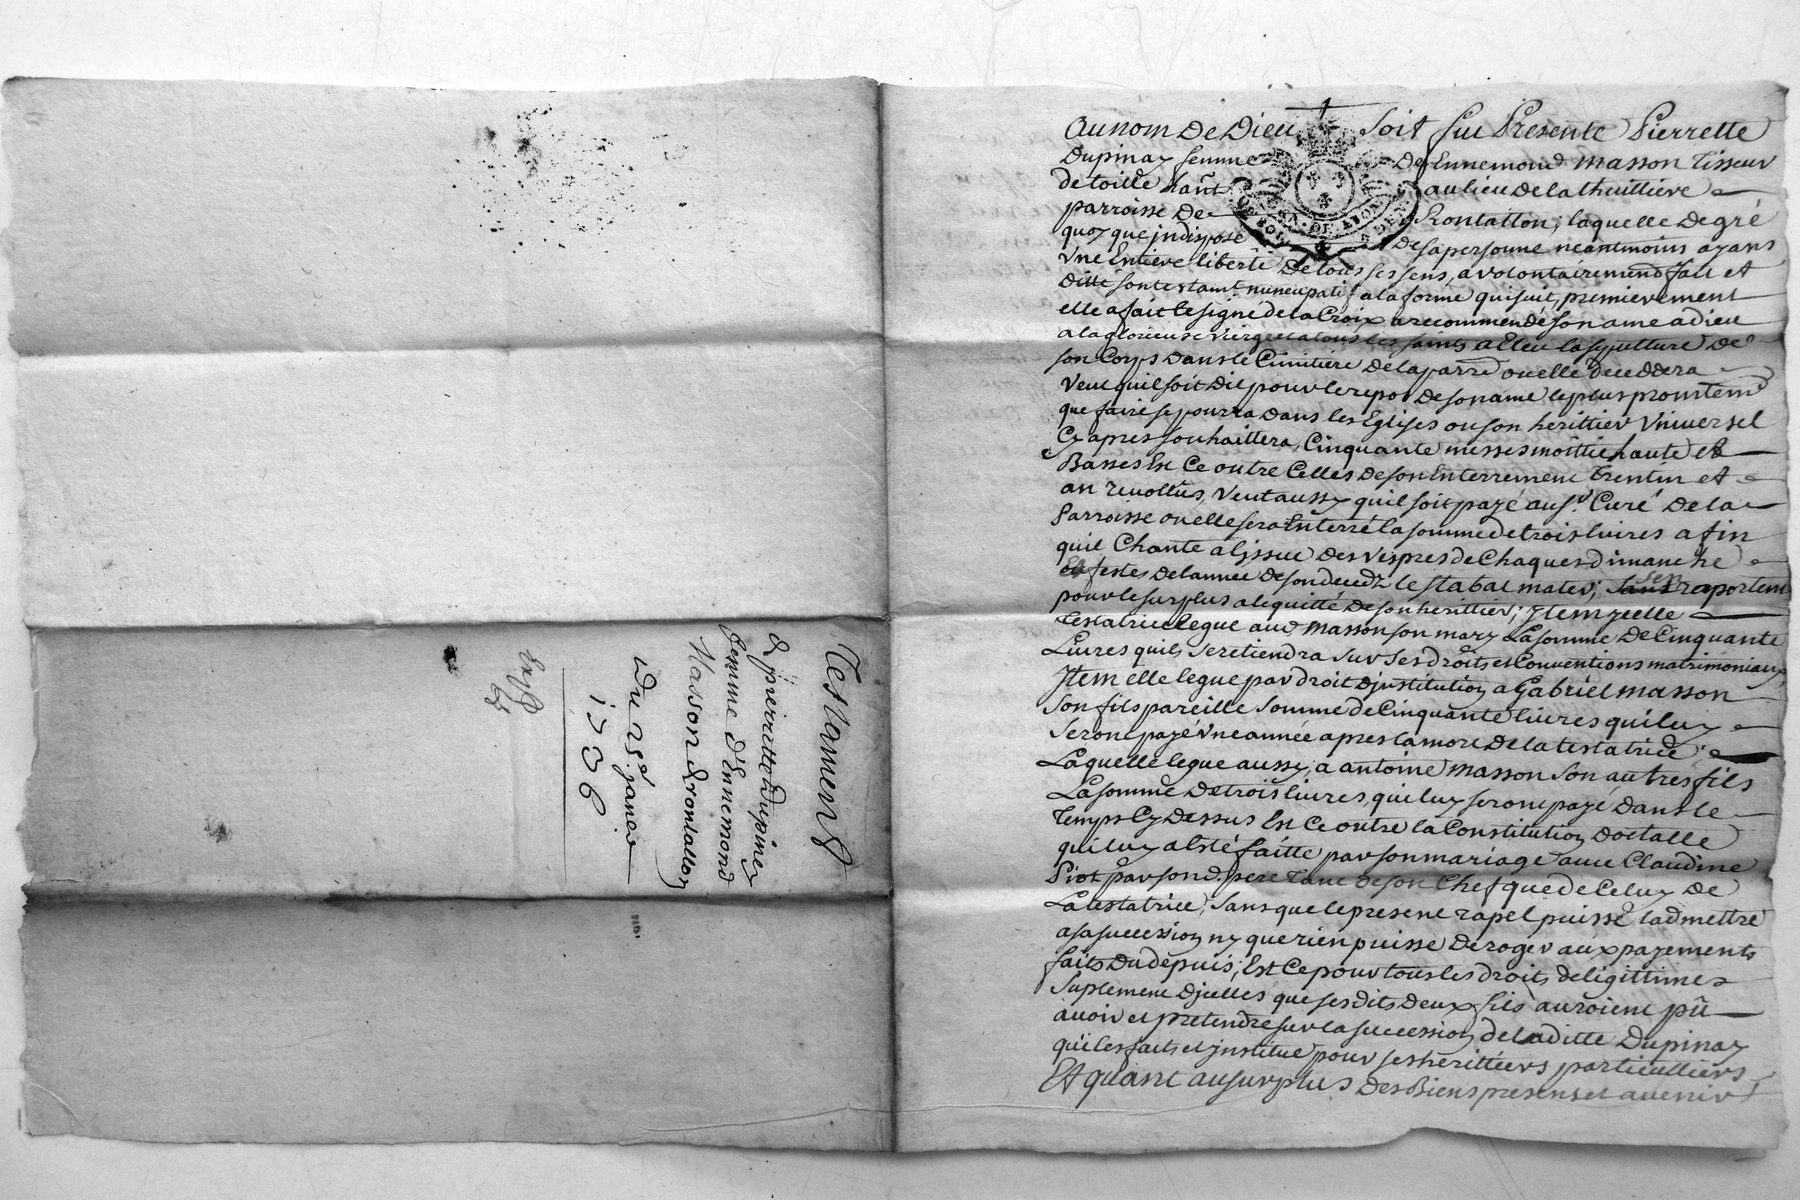 Testament
de pierrette dupiney
femme d'Ennemond
Masson de rontallon
Du 25e. janvier
1736
Au nom De Dieu Soit fut Presente Pierrette
Dupinay femme De Ennemond Masson Tisseur
de toille hant au lieu de la thuilliere
parroisse De Rontallon, laquelle De gré
quoy que jndisposé De sa personne neantmoins ayans
Vne Entiere liberté De tous ses sens, a volontairement fait et
Ditté son testamt. nuncupatif a la forme qui suit, premierement
elle a fait le signe de la Croix a recommendé son ame a dieu
a la glorieuse vierge et a tous les saints a Eleu la sepulture De
son Corps Dans le Cimitiere De la parre ou elle Deceddera
Veut quil soit Dit pour le repos De son ame le plus promtemt
que faire se pourra Dans les Eglises ou son herittier Vniversel
Cy apres souhaittera, Cinquante messes moittié haute et
Basses Et Ce outre Celles De son Enterrement Trentin et
an revollus, Veut aussy quil soit payé au sr. Curé De la
Parroisse ou elle sera Enterré la somme de trois livres a fin
quil Chante a l'jssue Des Vespres de Chaques Dimanche
et festes De l'année De son decedz le stabat mater, sen raportent
pour le surplus a lequitté De son herittier, jtem jcelle
testatrice legue aud. Masson son mary La somme De Cinquante
Livres quils se retiendra sur ses droits et Conventions matrimoniaux
Jtem elle legue par droit d'jnstitution a Gabriel Masson
son fils pareille somme de Cinquante livres qui luy
seront payé Vne année apres la mort De la testatrice
Laquelle legue aussy, a antoine Masson son autres fils
La somme De trois livres, qui luy seront payé dans le
temps Cy Dessus Et Ce outre la Constitution dotalle
qui luy a Esté faitte par son mariage avec Claudine
Piot par son d. pere tant de son Chef que de Celuy De
La testatrice, sans que le present rapel puisse ladmettre
a sa succession ny que rien puisse Deroger aux payements
faits Du depuis, Est Ce pour tous les droits de ligittimes
Suplement D'jcelles que ses dits Deux fils auroient pû
avoir et pretendre sur la succession de la ditte Dupinay
qui les faits et jnstitue pour ses herittiers particulliers
Et quant au surplus Des Biens presens et avenir